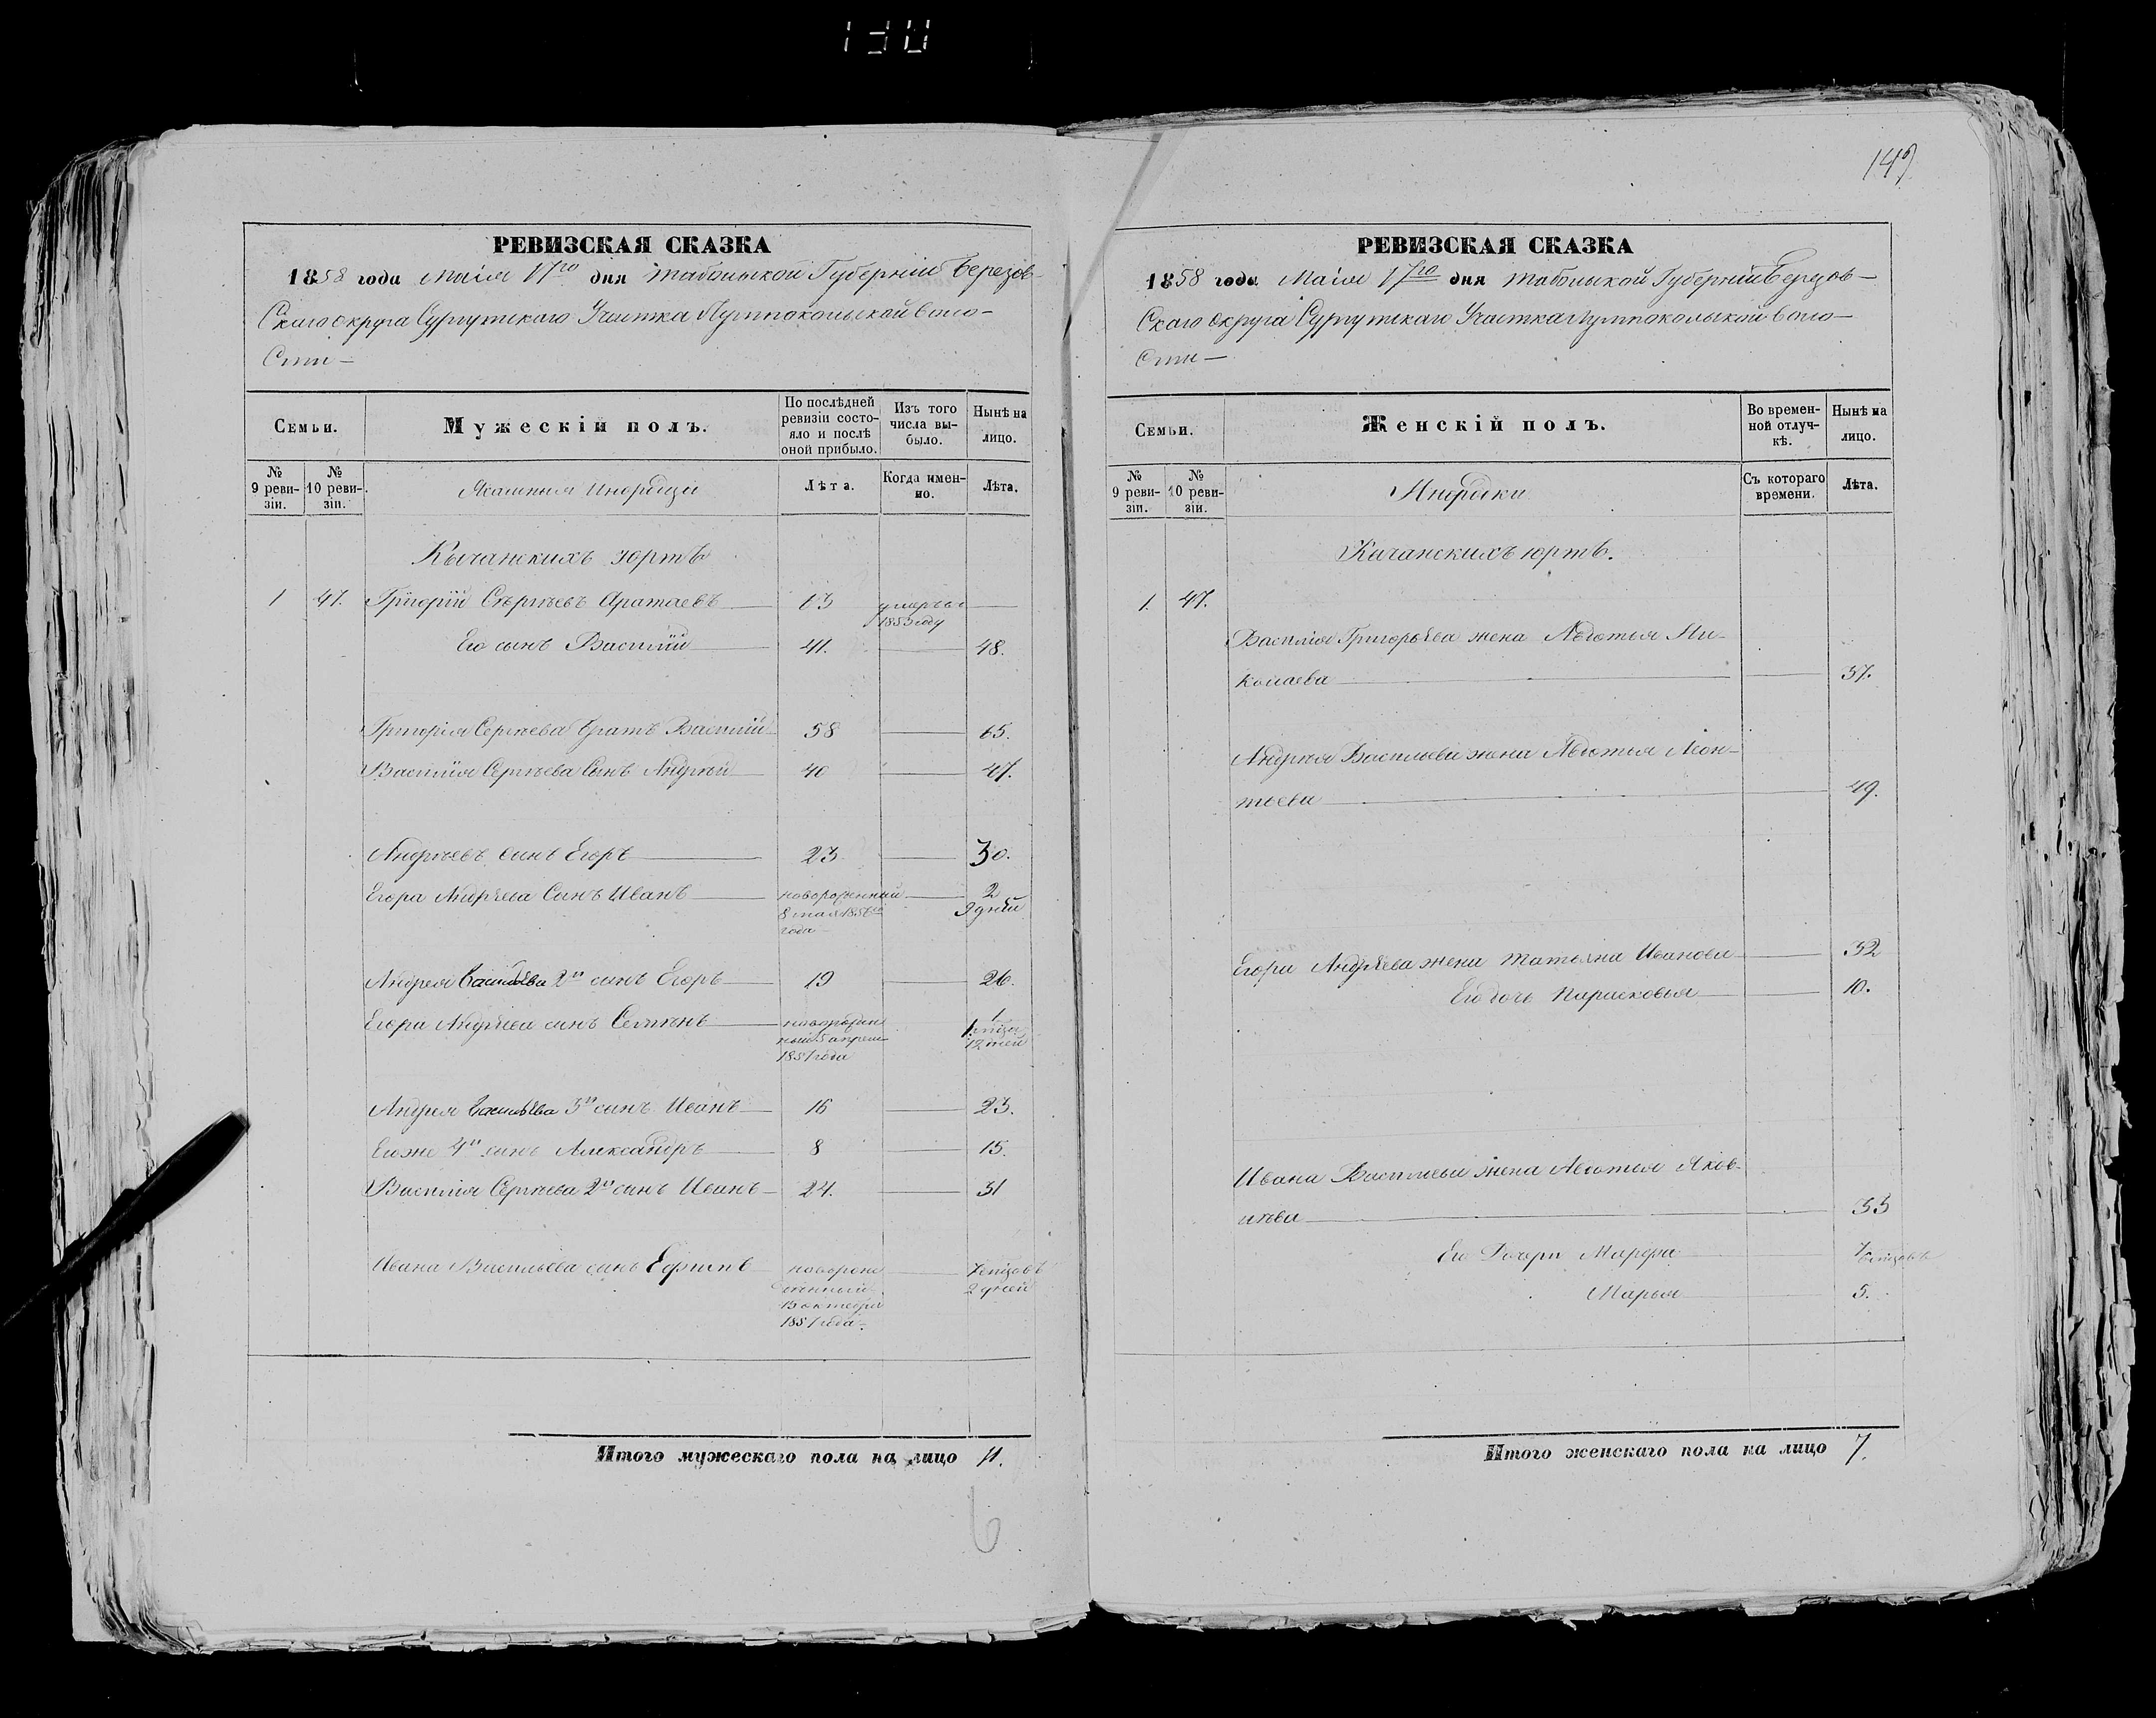 149
РЕВИЗСКАЯ СКАЗКА
1858 года Маія 17го дня Тобольской Губерніи Березов-
скаго округа Сургутскаго Участка Лумпокольской воло-
сти —
Семьи.
Мужескій полъ.
По послѣдней ревизіи состояло и послѣ оной прибыло.
Изъ того числа выбыло.
Нынѣ на лицо.
№ 9 ревизіи.
№ 10 ревизіи.
Ясашныя Инородцы
Лѣта.
Когда именно.
Лѣта.
Кычанскихъ юртъ
1 47. Григорій Сергѣевъ Аратаевъ 63 умеръ въ 1853 году —
Его сынъ Василій 41. — 48.
Григорія Сергѣева братъ Василій 58 — 65.
Василія Сергѣева Сынъ Андрѣй 40 — 47.
Андрѣевъ сынъ Егоръ 23 — 30.
Егора Андрѣева Сынъ Иванъ новорожнный — 2
8 мая 1856го 9 дней
года
Андрея Васильева 2й сынъ Егоръ 19 — 26.
Егора Андрѣева сынъ Семенъ новорожден 1
ный 5 апреля
1857 года 12 дней
Андрея Васильева 3й сынъ Иванъ 16 — 23.
Егоже 4й сынъ Александръ 8 — 15.
Василія Сергѣева 2й сынъ Иванъ 24. — 31
Ивана Васильева сынъ Ефимъ новорож — 7 мѣсяцовъ
денный 2 дней
15 октября
1857 года.
Итого мужескаго пола на лицо 11.
6
РЕВИЗСКАЯ СКАЗКА
1858 года Маія 17го дня Тобольской Губерніи Березов—
скаго округа Сургутскаго Участка Лумпокольской воло—
сти —
Семьи.
Женскій полъ.
Во временной отлучкѣ.
Нынѣ на лицо.
№ 9 ревизіи.
№ 10 ревизіи.
Инородки
Съ котораго времени.
Лѣта.
Качанскихъ юртъ.
1. 47.
Василія Григорьева жена Авдотья Ни-
колаева — 37.
Андрѣя Васильева жена Авдотья Леон-
тьева — 49.
Егора Андрѣева жена Татьяна Иванова — 32
Его дочь Парасковья — 10.
Ивана Васильева жена Авдотья Яков-
лѣва — 33
Его Дочери Марфа 7 мѣсяцовъ
Марья 5.
Итого женскаго пола на лицо 7.